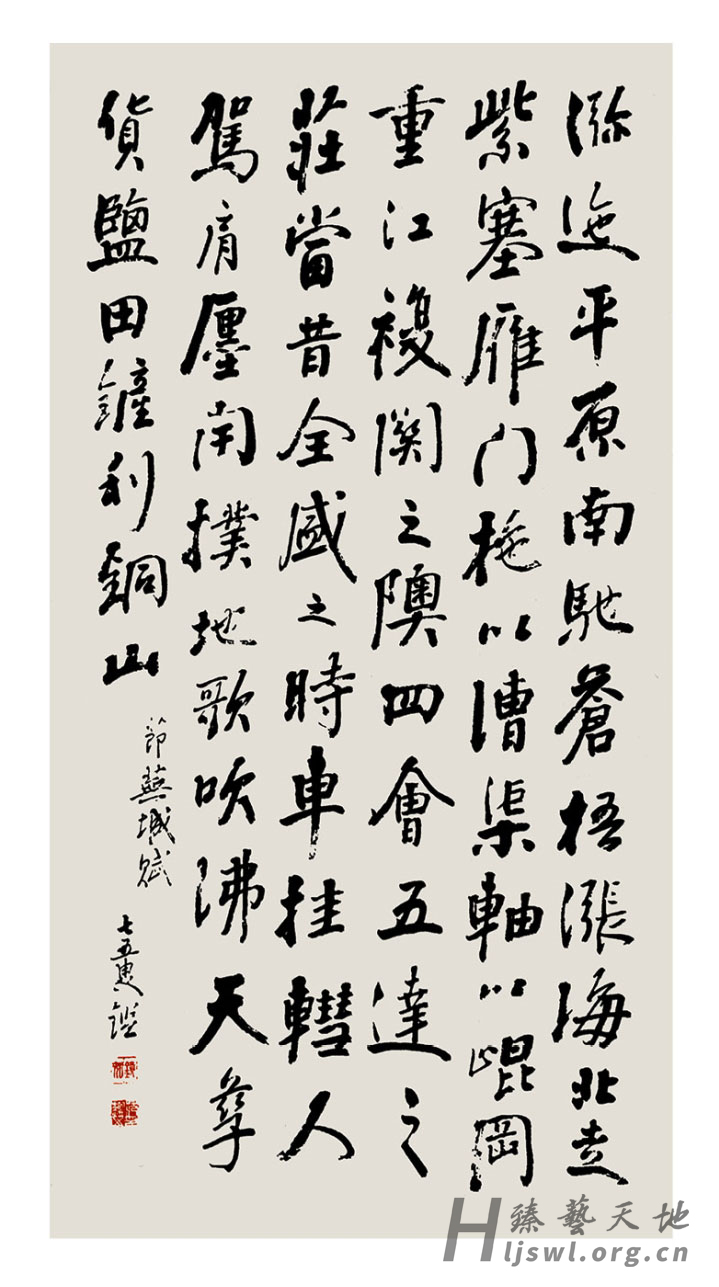 㳽迤平原南馳蒼梧漲海北走
紫塞雁門柂以漕渠軸以崐岡
重江複關之隩四會五達之
莊當昔全盛之時車挂轊人
駕肩廛閈撲地歌吹沸天孳
貨鹽田鏟利銅山
節蕪城賦
七五叟鑑
臻藝天地
Hljswl.org.cn